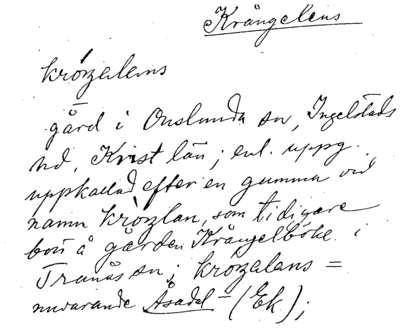 Krångelens
krŏŋalens
gård i Onslunda sn, Ingelstads
hd, Krist län; enl. uppg.
uppkallad efter en gumma vid
namn krŏŋlan, som tidigare
bott å gården Krångelböke i
Tranås sn; krŏŋalans =
nuvarande Åsadal (Ek);